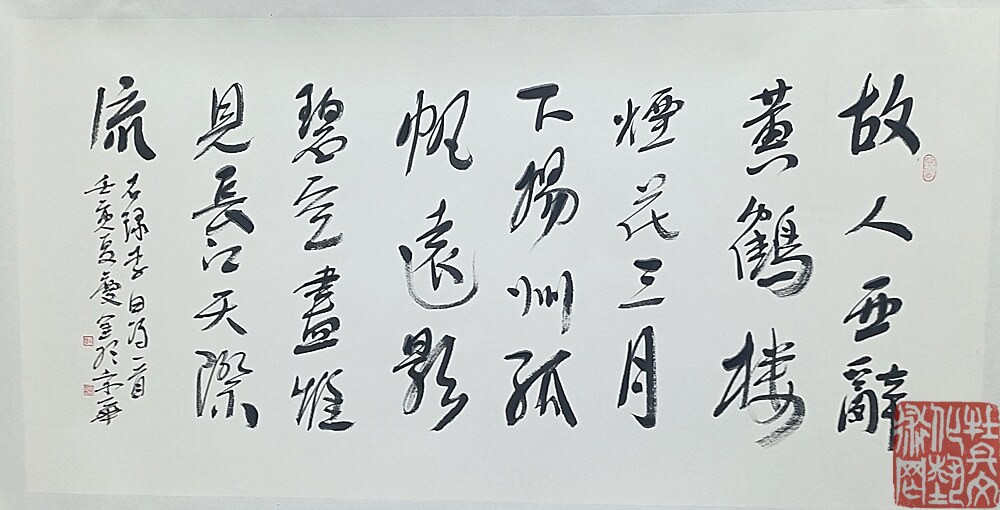 故人西辭
黄鶴楼
煙花三月
下揚州孤
帆遠影
碧空盡惟
見長江天際
流
右録李白诗一首
壬寅夏慶於京華